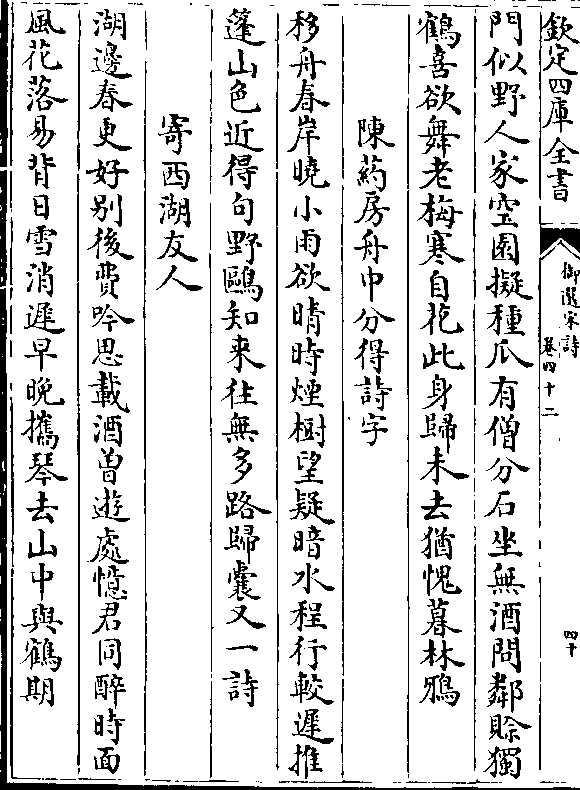 欽定四庫全書
御選宋詩
卷四十二
四十
門似野人家空園擬種瓜有僧分石坐無酒問鄰賖獨
鶴喜欲舞老梅寒自花此身歸未去猶愧暮林鴉
陳葯房舟中分得詩字
移舟春岸曉小雨欲晴時煙樹望疑暗水程行較遲推
蓬山色近得句野鷗知来往無多路歸囊又一詩
寄西湖友人
湖邊春更好别後費吟思載酒曾遊處憶君同醉時面
風花落易背日雪消遲早晚攜琴去山中與鶴期